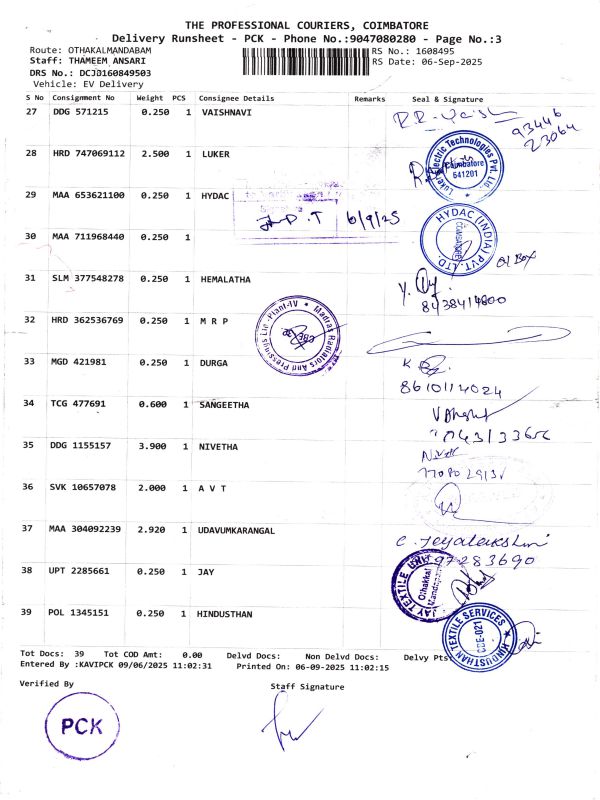 THE PROFESSIONAL COURIERS, COIMBATORE
Delivery Runsheet - PCK - Phone No.:9047080280 - Page No.:3
Route: OTHAKALMANDABAM RS No.: 1608495
Staff: THAMEEM ANSARI RS Date: 06-Sep-2025
DRS No.: DCJ0160849503
Vehicle: EV Delivery
S No Consignment No Weight PCS Consignee Details Remarks Seal & Signature
27 DDG 571215 0.250 1 VAISHNAVI
93446
23064
28 HRD 747069112 2.500 1 LUKER
Luker Electric Technologies Pvt. Ltd.
Coimbatore
641201
29 MAA 653621100 0.250 1 HYDAC
6/9/25
HYDAC (INDIA) PVT. LTD.
30 MAA 711968440 0.250 1
01 Box
31 SLM 377548278 0.250 1 HEMALATHA
8438414800
32 HRD 362536769 0.250 1 M R P
Madras Radiators And Pressings Ltd.-Plant-IV
33 MGD 421981 0.250 1 DURGA
8610114024
34 TCG 477691 0.600 1 SANGEETHA
35 DDG 1155157 3.900 1 NIVETHA
36 SVK 10657078 2.000 1 A V T
37 MAA 304092239 2.920 1 UDAVUMKARANGAL
C. Jeyalakshmi
97283690
38 UPT 2285661 0.250 1 JAY
JAY TEXTILE UNIT
Othakkal
Mandapam
39 POL 1345151 0.250 1 HINDUSTHAN
HINDUSTHAN TEXTILE SERVICES
CBE-021
Tot Docs: 39 Tot COD Amt: 0.00 Delvd Docs: Non Delvd Docs: Delvy Pts
Entered By :KAVIPCK 09/06/2025 11:02:31 Printed On: 06-09-2025 11:02:15
Verified By Staff Signature
PCK